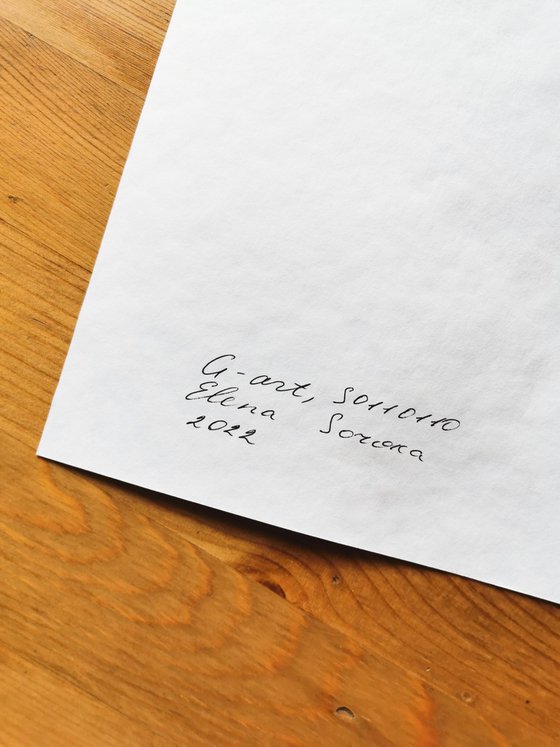 G-art, S0110110
Elena Soroka
2022